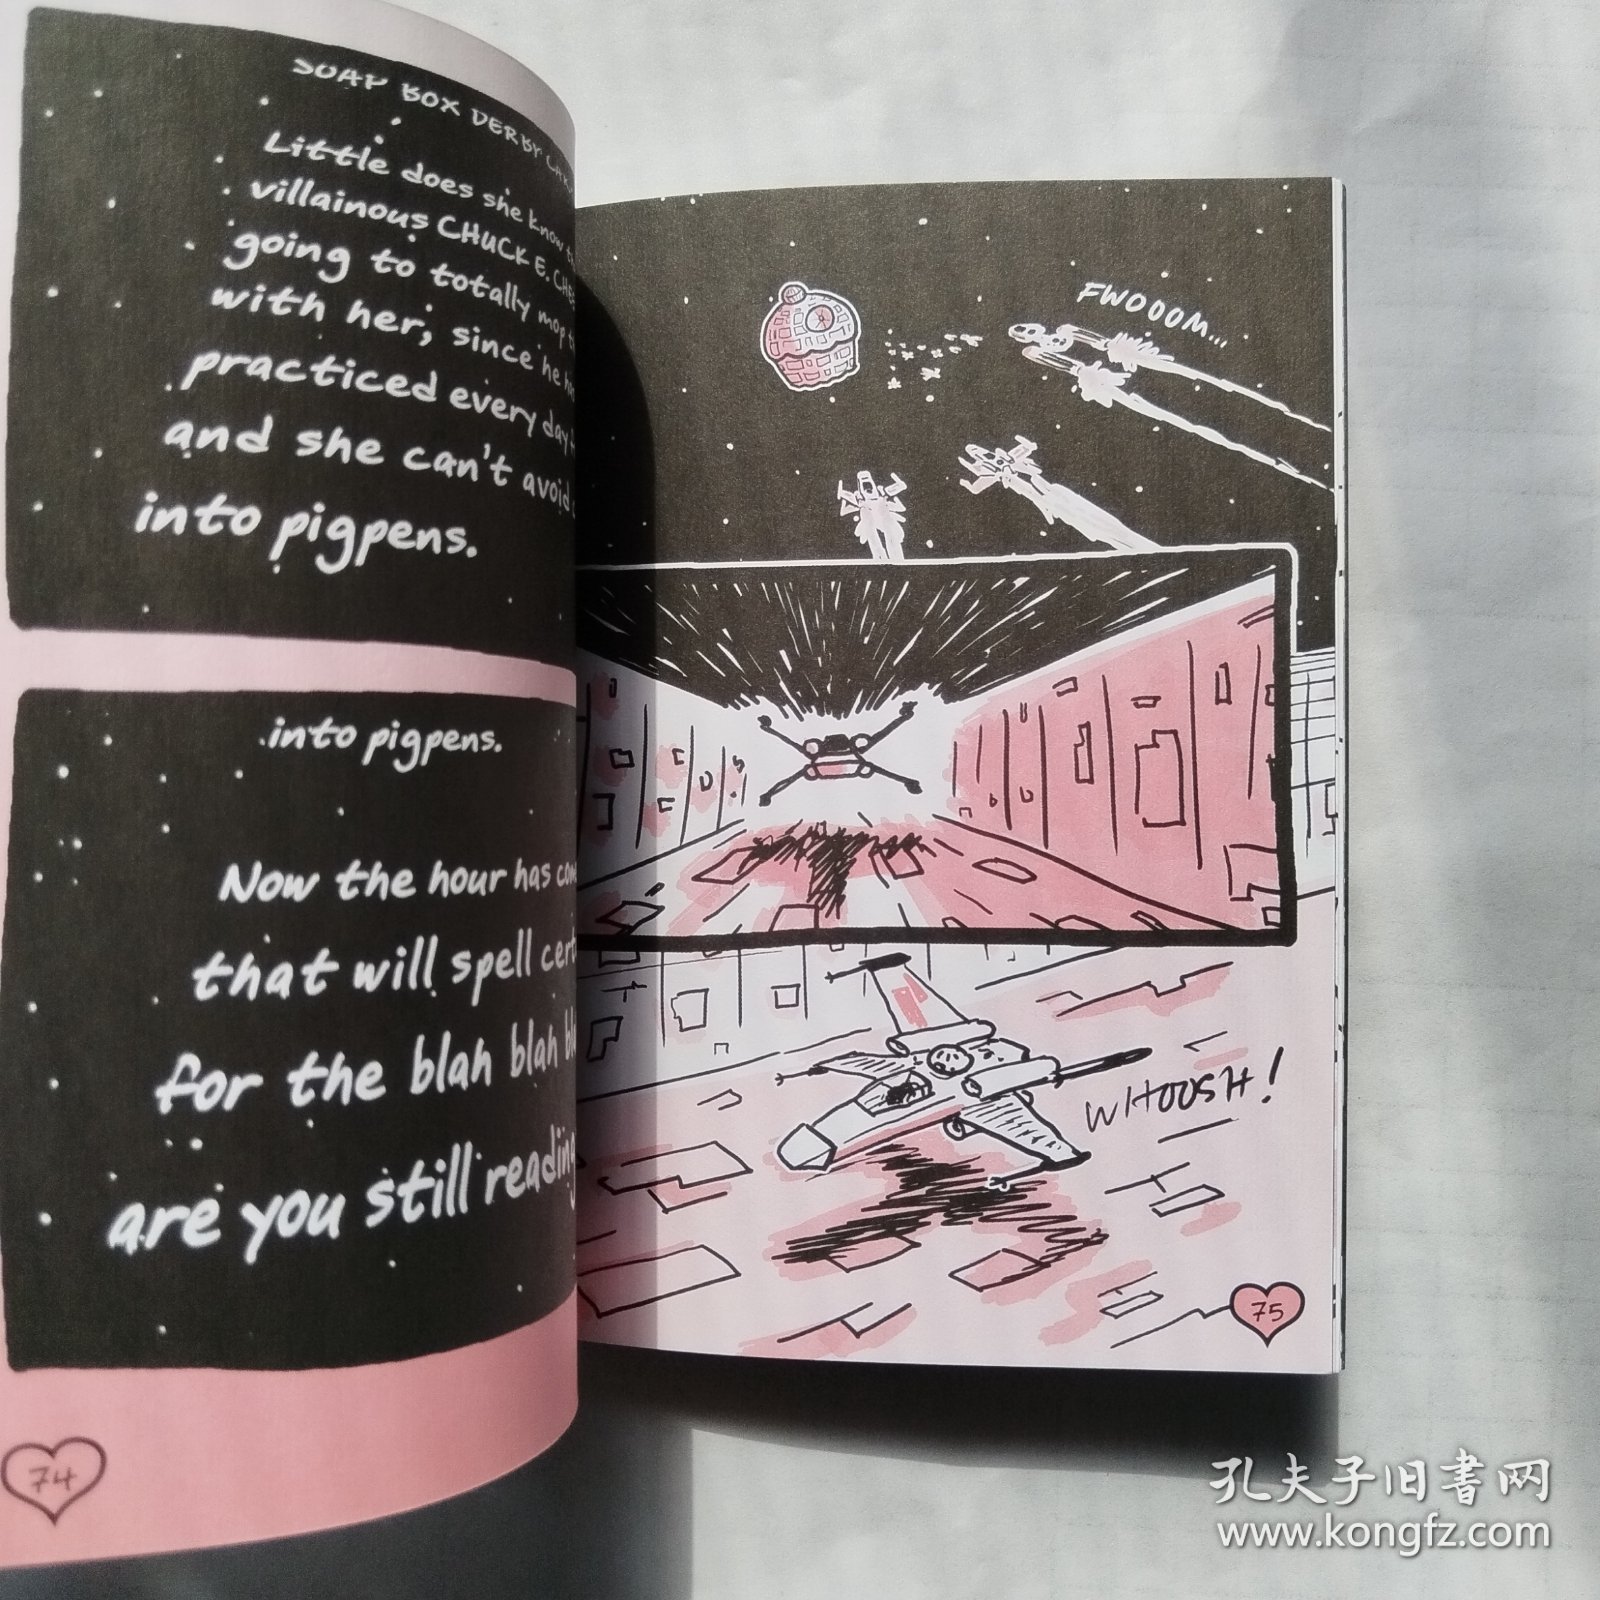 SOAP BOX DERBY
Little does she know
villainous CHUCK E.
going to totally mop
with her, since he
practiced every day
and she can't avoid
into pigpens.
into pigpens.
Now the hour has
that will spell
for the blah blah
are you still reading
74
FWOOOM...
WHOOSH!
75
孔夫子旧书网
www.kongfz.com